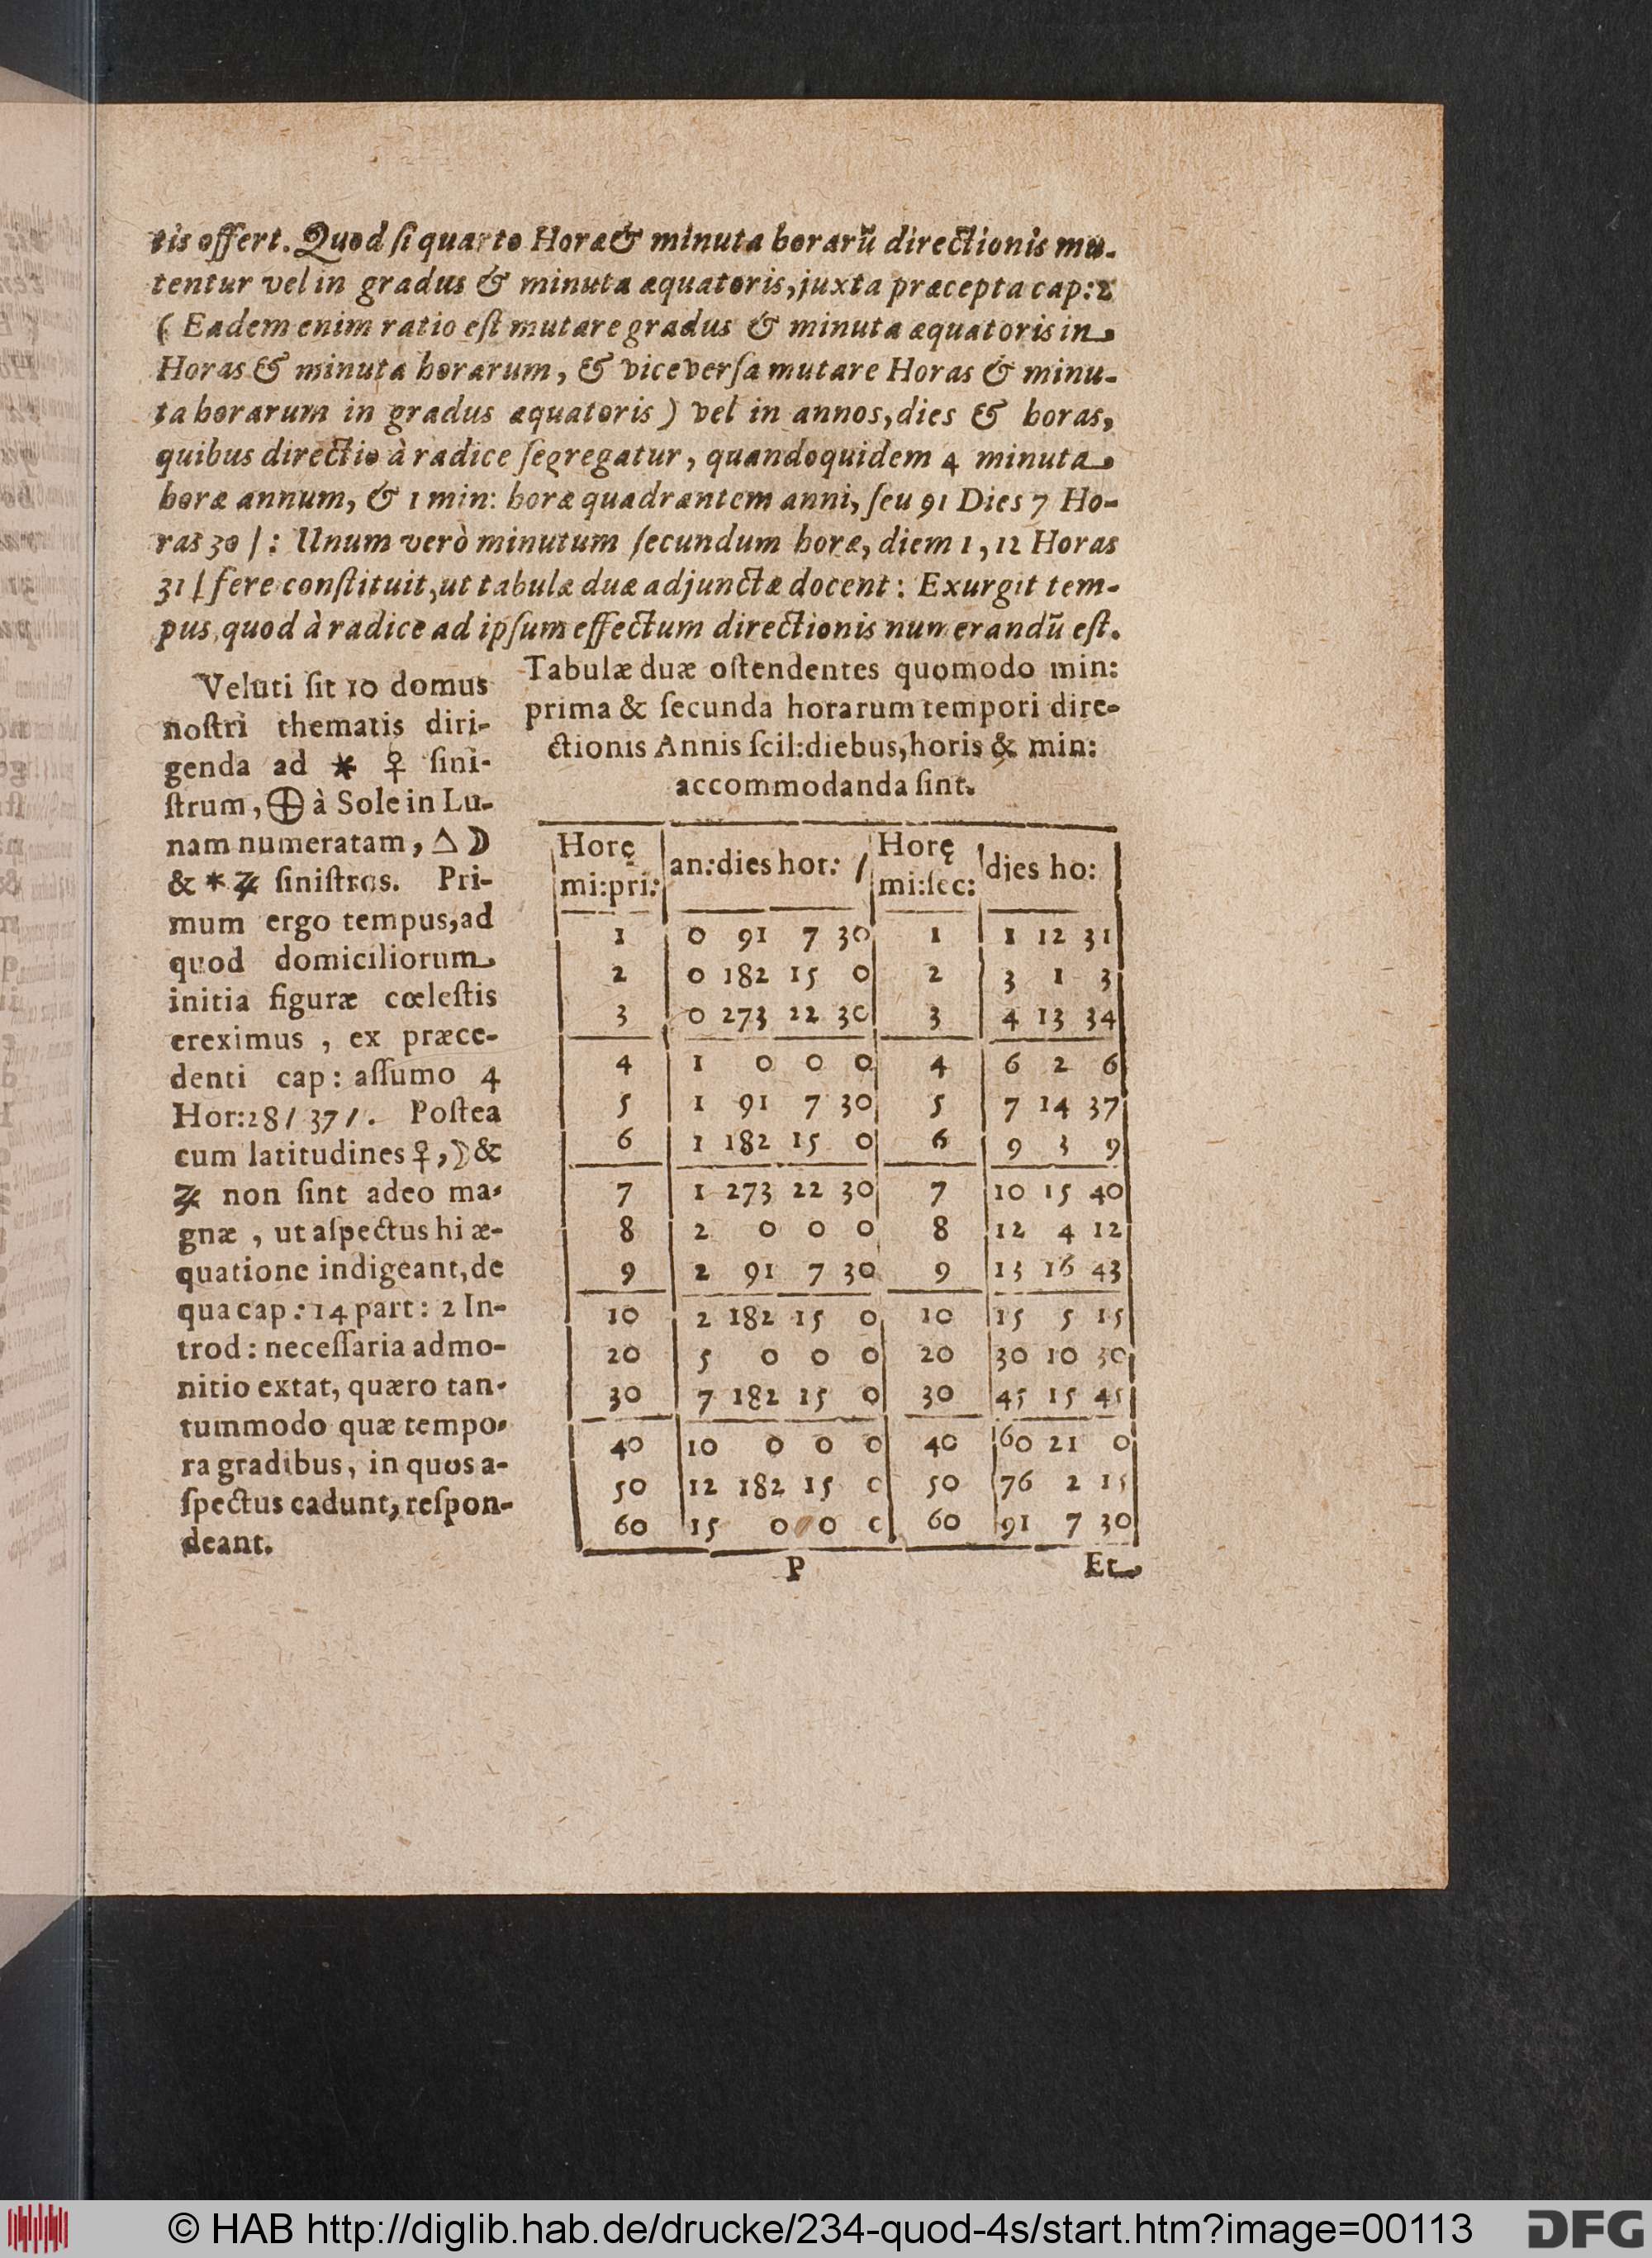 tis offert. Quod ſi quarto Horæ & minuta horarũ directionis mu-
tentur vel in gradus & minuta æquatoris, juxta præcepta cap: 2
( Eadem enim ratio eſt mutare gradus & minuta æquatoris in
Horas & minuta horarum, & viceverſa mutare Horas & minu-
ta horarum in gradus æquatoris ) vel in annos, dies & horas,
quibus directio à radice ſegregatur, quandoquidem 4 minuta
horæ annum, & 1 min: horæ quadrantem anni, ſeu 91 Dies 7 Ho-
ras 30 / : Unum verò minutum ſecundum horæ, diem 1, 12 Horas
31 / fere conſtituit, ut tabulæ duæ adjunctæ docent : Exurgit tem-
pus, quod à radice ad ipſum effectum directionis numerandũ eſt.
Veluti ſit 10 domus
noſtri thematis diri-
genda ad ⚹ ♀ ſini-
ſtrum, ⊕ à Sole in Lu-
nam numeratam, △ ☽
& ⚹ ♃ ſiniſtros. Pri-
mum ergo tempus, ad
quod domiciliorum
initia figuræ cœleſtis
ereximus , ex præce-
denti cap: aſſumo 4
Hor: 28 / 37 / . Poſtea
cum latitudines ♀, ☽ &
♃ non ſint adeo ma-
gnæ , ut aſpectus hi æ-
quatione indigeant, de
qua cap : 14 part : 2 In-
trod : neceſſaria admo-
nitio extat, quæro tan-
tummodo quæ tempo-
ra gradibus, in quos a-
ſpectus cadunt, reſpon-
deant.
Tabulæ duæ oſtendentes quomodo min:
prima & ſecunda horarum tempori dire-
ctionis Annis ſcil: diebus, horis & min:
accommodanda ſint.
Horę mi:pri: an: dies hor: / Horę mi:ſec: dies ho:
1 0 91 7 30 1 1 12 31
2 0 182 15 0 2 3 1 3
3 0 273 22 30 3 4 13 34
4 1 0 0 0 4 6 2 6
5 1 91 7 30 5 7 14 37
6 1 182 15 0 6 9 3 9
7 1 273 22 30 7 10 15 40
8 2 0 0 0 8 12 4 12
9 2 91 7 30 9 13 16 43
10 2 182 15 0 10 15 5 15
20 5 0 0 0 20 30 10 30
30 7 182 15 0 30 45 15 45
40 10 0 0 0 40 60 21 0
50 12 182 15 0 50 76 2 15
60 15 0 0 0 60 91 7 30
P Et
© HAB http://diglib.hab.de/drucke/234-quod-4s/start.htm?image=00113 DFG